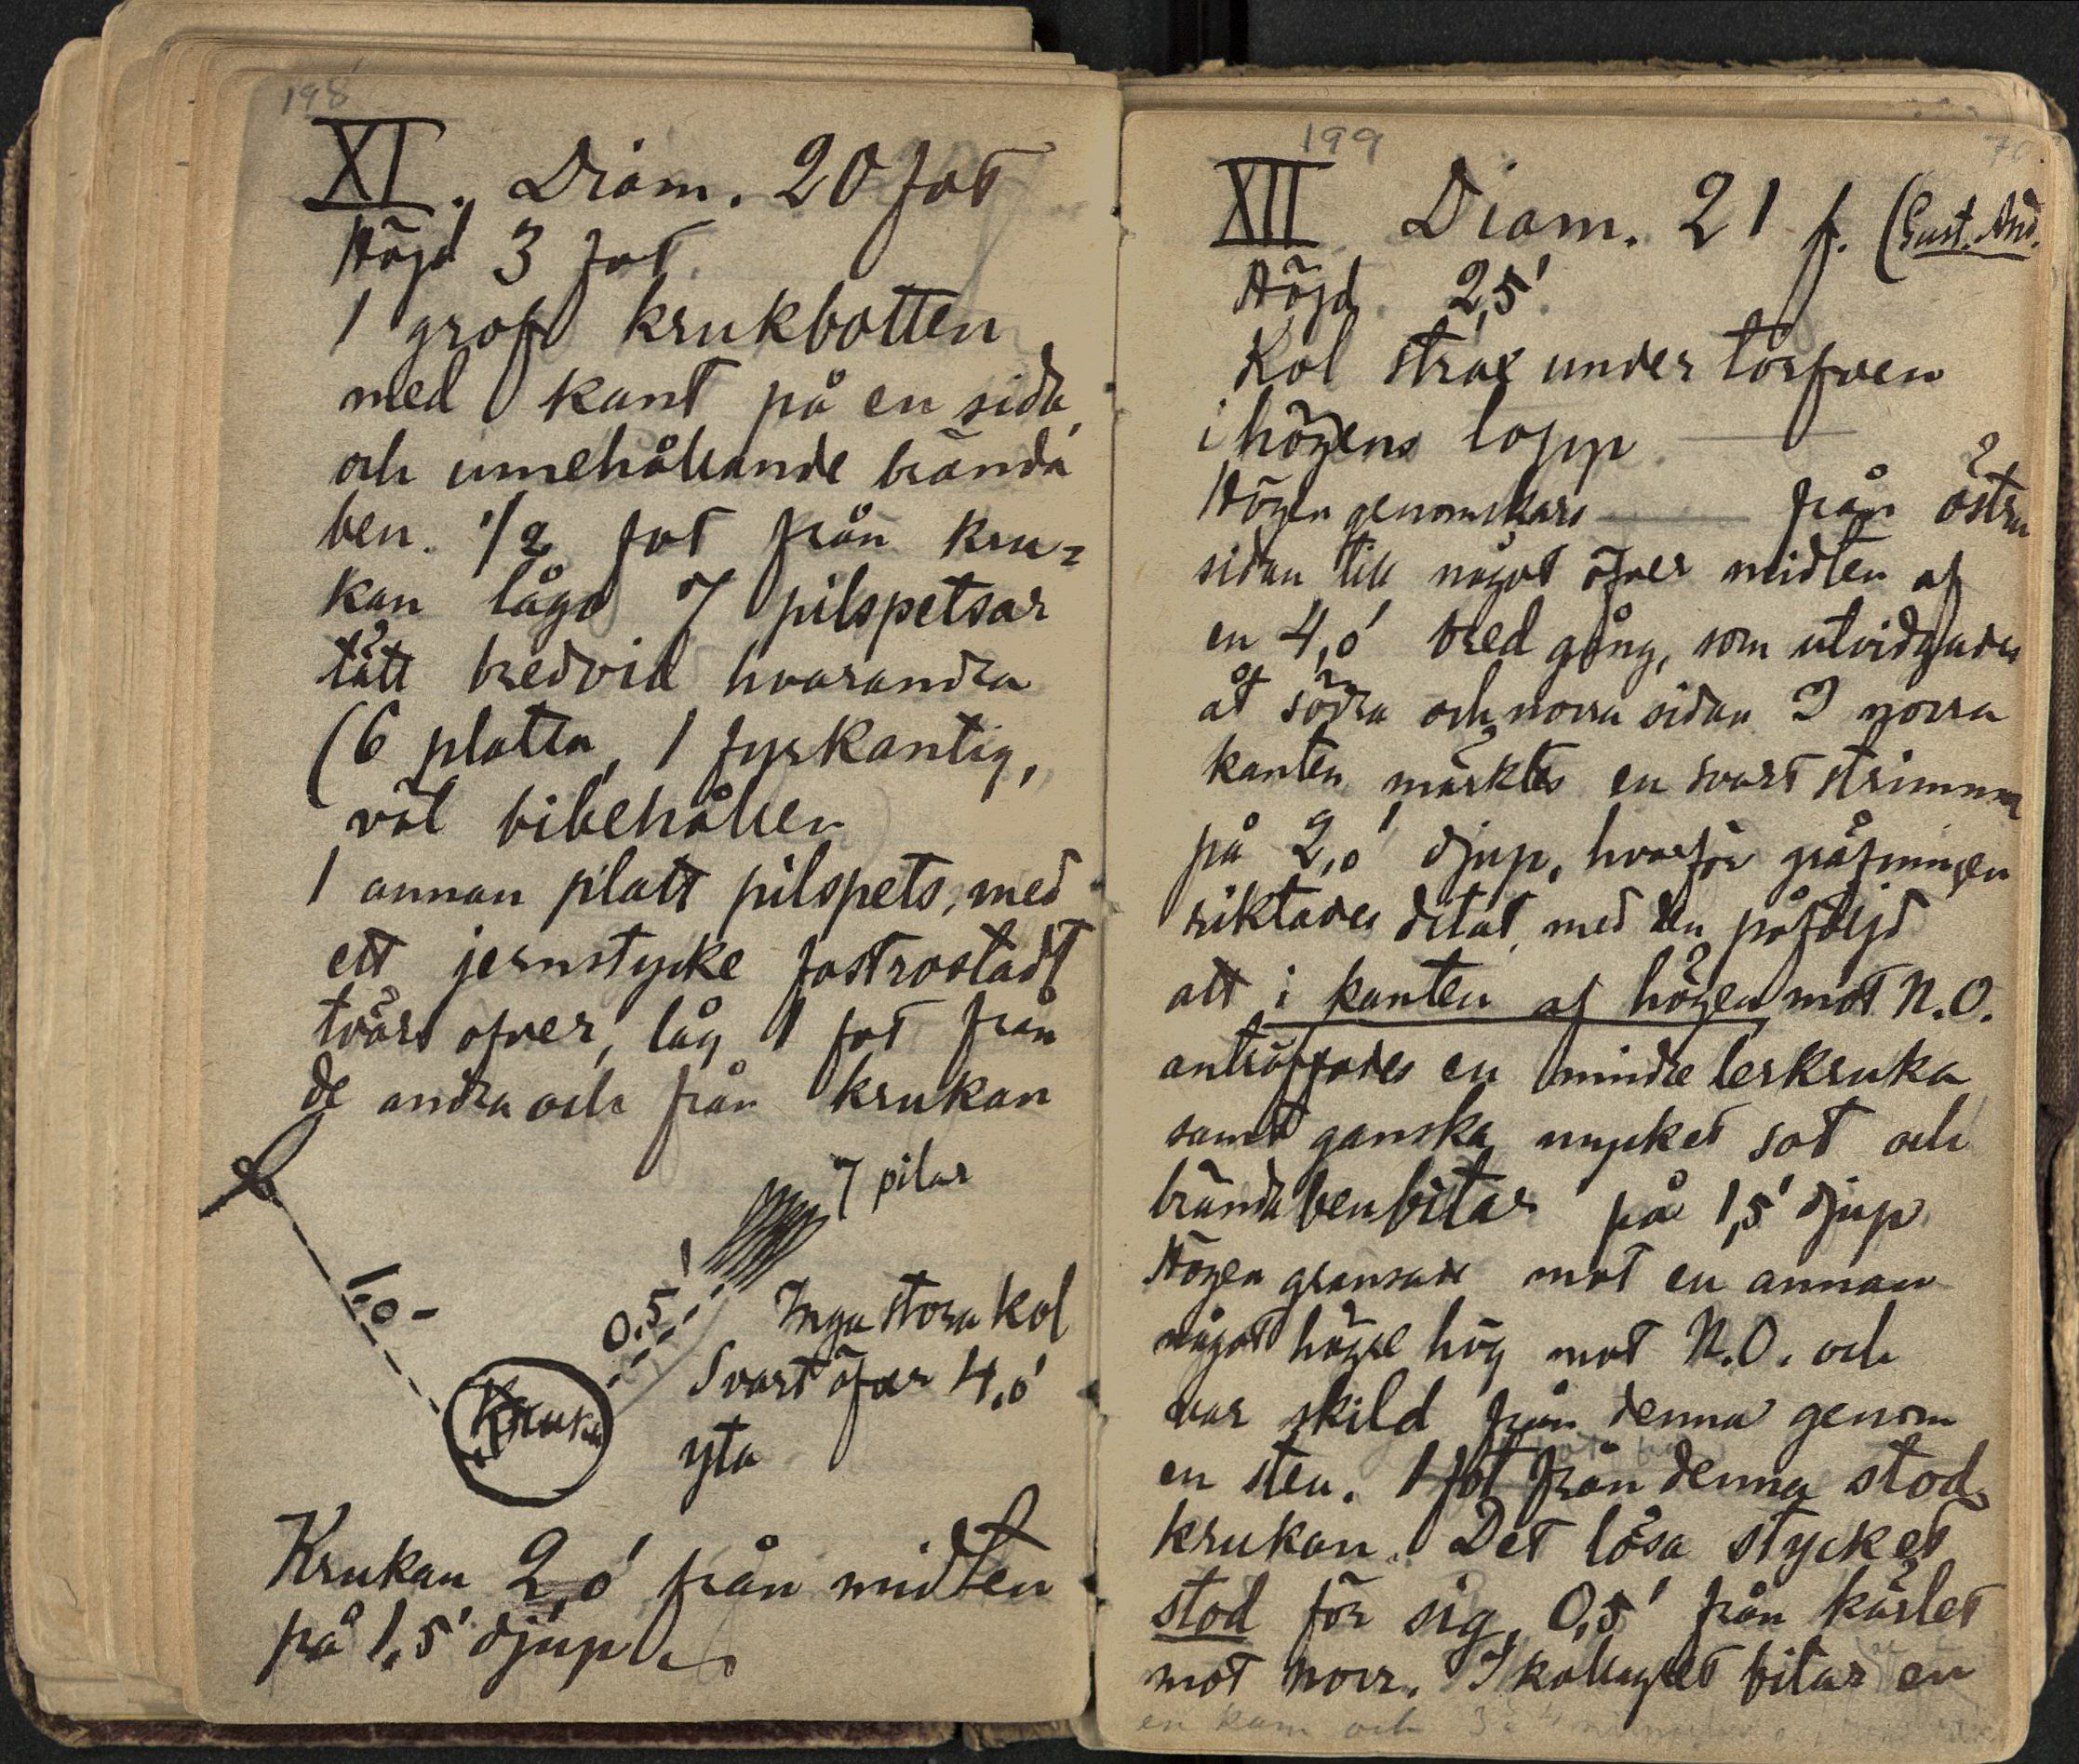 198
XI. Diam. 20 fot
Höjd 3 fot.
1 grof krukbotten
med kant på en sida
och innehållande brända
ben. 1/2 fot från kru=
kan lågo 7 pilspetsar
tätt bredvid hvarandra
(6 platta, 1 fyrkantig,
väl bibehållen
1 annan platt pilspets, med
ett jernstycke fastrostadt
tvärs öfver, låg 1 fot från
de andra och från krukan
7 pilar
1.0
0.5'
Inga stora kol
Svart öfver 4,0'
yta
Kruka
Krukan 2,0' från midten
på 1,5' djup
199
70
XII Diam. 21 f. (Gust. And.
Höjd 2,5'
Kol strax under torfven
i högens topp
Högen genomskars från östra
sidan till något öfver midten af
en 4,0' bred gång, som utvidgades
åt södra och norra sidan I norra
kanten märktes en svart strimma
på 2,0' djup, hvarför gräfningen
riktades ditåt, med den påföljd
att i kanten af högen mot N.O.
anträffades en mindre lerkruka
samt ganska mycket sot och
brända benbitar på 1,5' djup
Högen gränsade mot en annan
något högre hög mot N.O. och
var skild från denna genom
en sten. 1 fot från denna stod
krukan. Det lösa stycket
stod för sig, 0,5' från kärlet
mot norr. I kollagret bitar en
en kam och 3 à 4